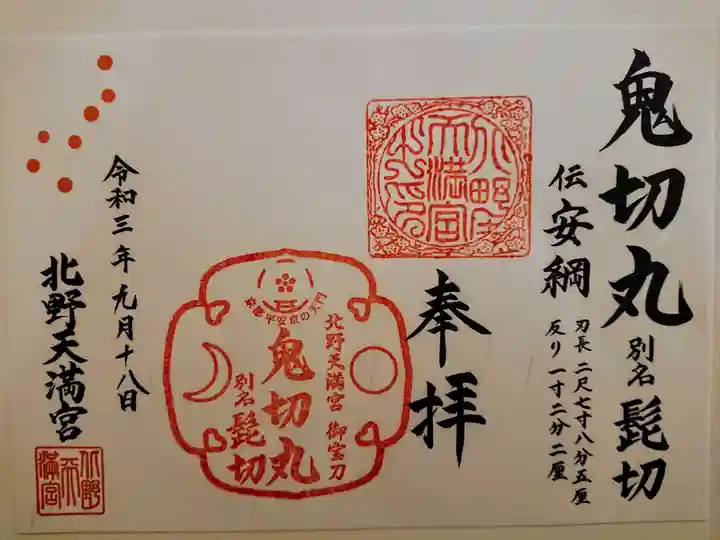 鬼切丸 別名 髭切
伝 安綱
刃長 二尺七寸八分五厘
反り 一寸二分二厘
奉拝
北野天満宮 御宝刀
鬼切丸
別名 髭切
令和三年九月十八日
北野天満宮
北野
天
満宮